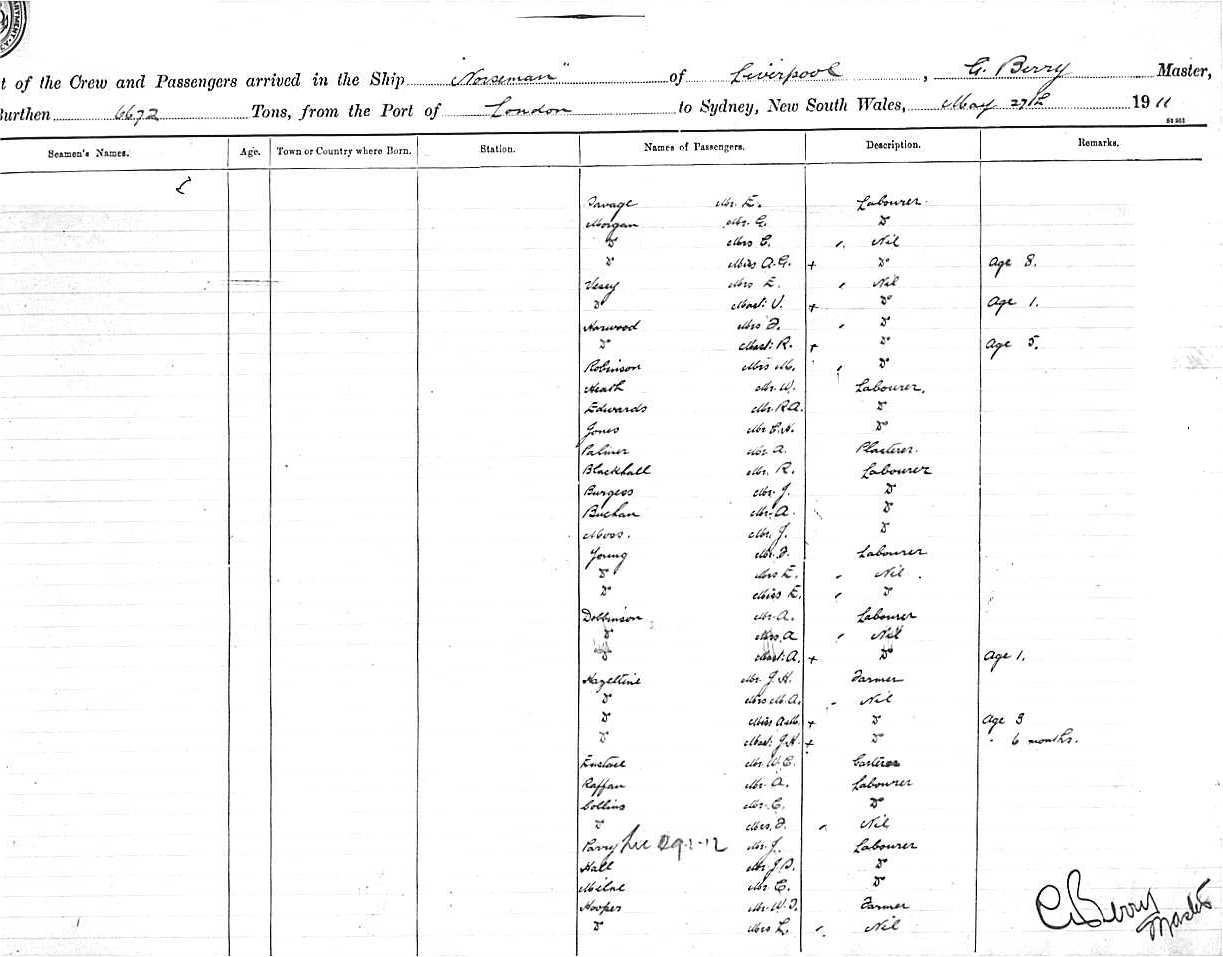 t of the Crew and Passengers arrived in the Ship "Norseman" of Liverpool, G. Berry Master,
Burthen 6672 Tons, from the Port of London to Sydney, New South Wales, May 27th 1911
Seamen's Names. Age. Town or Country where Born. Station. Names of Passengers. Description. Remarks.
Savage Mr. E. Labourer.
Morgan Mr. G. Do
Do Mrs C. " Nil
Do Miss A.G. + Do Age 8.
Vesey Mrs E. " Nil
Do Mast: V. + Do Age 1.
Harwood Mrs F. " Do
Do Mast: R. + Do Age 5.
Robinson Mrs M. " Do
Heath Mr. W. Labourer.
Edwards Mr. R.A. Do
Jones Mr. C.H. Do
Palmer Mr. A. Plasterer.
Blackhall Mr. R. Labourer
Burgess Mr. J. Do
Buchan Mr. A. Do
Moss. Mr. J. Do
Young Mr. F. Labourer
Do Mrs E. " Nil.
Do Miss E. " Do
Dobbinson Mr. A. Labourer
Do Mrs. A " Nil
Do Mast: A. + Do Age 1.
Hazeltine Mr. J.H. Farmer
Do Mrs M.A. " Nil
Do Miss A.M. + Do Age 3
Do Mast: J.H. + Do " 6 months.
Eustace Mr. W.C. Carterer
Raffan Mr. A. Labourer
Collins Mr. C. Do
Do Mrs. F. " Nil
Parry Mr. J. Labourer
Hall Mr. J.D. Do
Milne Mr C. Do
Hooper Mr. W.F. Farmer
Do Mrs L. " Nil
G Berry
Master